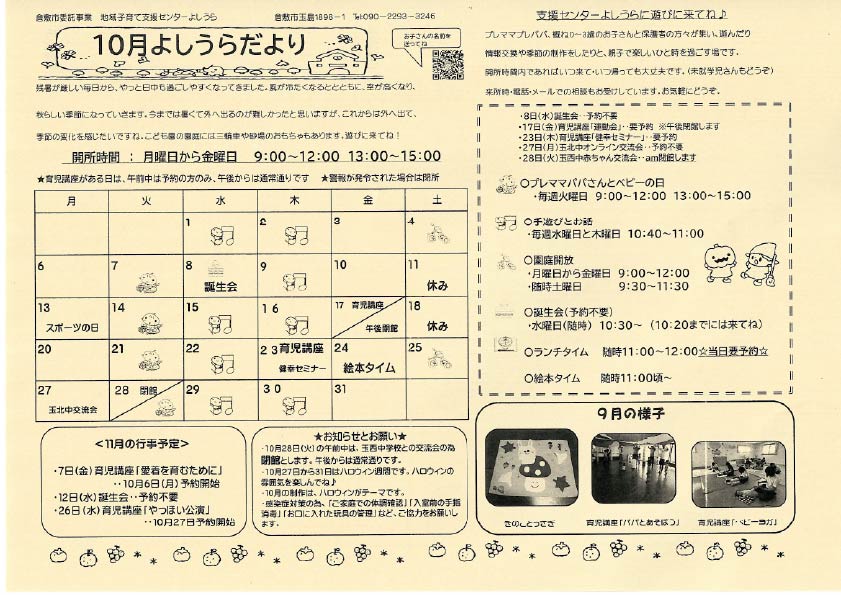 倉敷市委託事業　地域子育て支援センターよしうら　倉敷市玉島1898－1　Tel:090－2293－3246
10月よしうらだより
お子さんの名前を
送ってね
残暑が厳しい毎日から、やっと日中も過ごしやすくなってきました。風が冷たくなるとともに、空が高くなり、
秋らしい季節になっていきます。今までは暑くて外へ出るのが難しかったと思いますが、これからは外へ出て、
季節の変化を感じたいですね。こども園の園庭には三輪車や砂場のおもちゃもあります。遊びに来てね！
開所時間　：　月曜日から金曜日　9:00～12:00　13:00～15:00
★育児講座がある日は、午前中は予約の方のみ、午後からは通常通りです　★警報が発令された場合は閉所
月　火　水　木　金　土
1　2　3　4
6　7　8　誕生会　9　10　11　休み
13　スポーツの日　14　15　16　17　育児講座　午後閉館　18　休み
20　21　22　23　育児講座　健幸セミナー　24　絵本タイム　25
27　玉北中交流会　28　閉館　29　30　31
＜11月の行事予定＞
・7日(金)育児講座「愛着を育むために」
‥10月6日(月)予約開始
・12日(水)誕生会‥予約不要
・26日(水)育児講座「やっほい公演」
‥10月27日予約開始
★お知らせとお願い★
・10月28日(火)の午前中は、玉西中学校との交流会の為
閉館とします。午後からは通常通りです。
・10月27日から31日はハロウィン週間です。ハロウィンの
雰囲気を楽しんでね♪
・10月の制作は、ハロウィンがテーマです。
・感染症対策の為、「ご家庭での体調確認」「入室前の手指
消毒」「お口に入れた玩具の管理」など、ご協力をお願いし
ます。
支援センターよしうらに遊びに来てね♪
プレママプレパパ、概ね0～3歳のお子さんと保護者の方々が集い、遊んだり
情報交換や季節の制作をしたりと、親子で楽しいひと時を過ごす場です。
開所時間内であればいつ来て・いつ帰っても大丈夫です。(未就学児さんもどうぞ)
来所時・電話・メールでの相談もお受けしています。お気軽にどうぞ。
・8日(水)誕生会‥予約不要
・17日(金)育児講座「運動会」‥要予約　※午後閉館します
・23日(木)育児講座「健幸セミナー」‥要予約
・27日(月)玉北中オンライン交流会‥予約不要
・28日(火)玉西中赤ちゃん交流会‥am閉館します
〇プレママパパさんとベビーの日
・毎週火曜日　9:00～12:00　13:00～15:00
〇手遊びとお話
・毎週水曜日と木曜日　10:40～11:00
〇園庭開放
・月曜日から金曜日　9:00～12:00
・随時土曜日　9:30～11:30
〇誕生会(予約不要)
・水曜日(随時)　10:30～　(10:20までには来てね)
〇ランチタイム　随時11:00～12:00☆当日要予約☆
〇絵本タイム　随時11:00頃～
9月の様子
きのことうさぎ　育児講座「パパとあそぼう」　育児講座「ベビーヨガ」